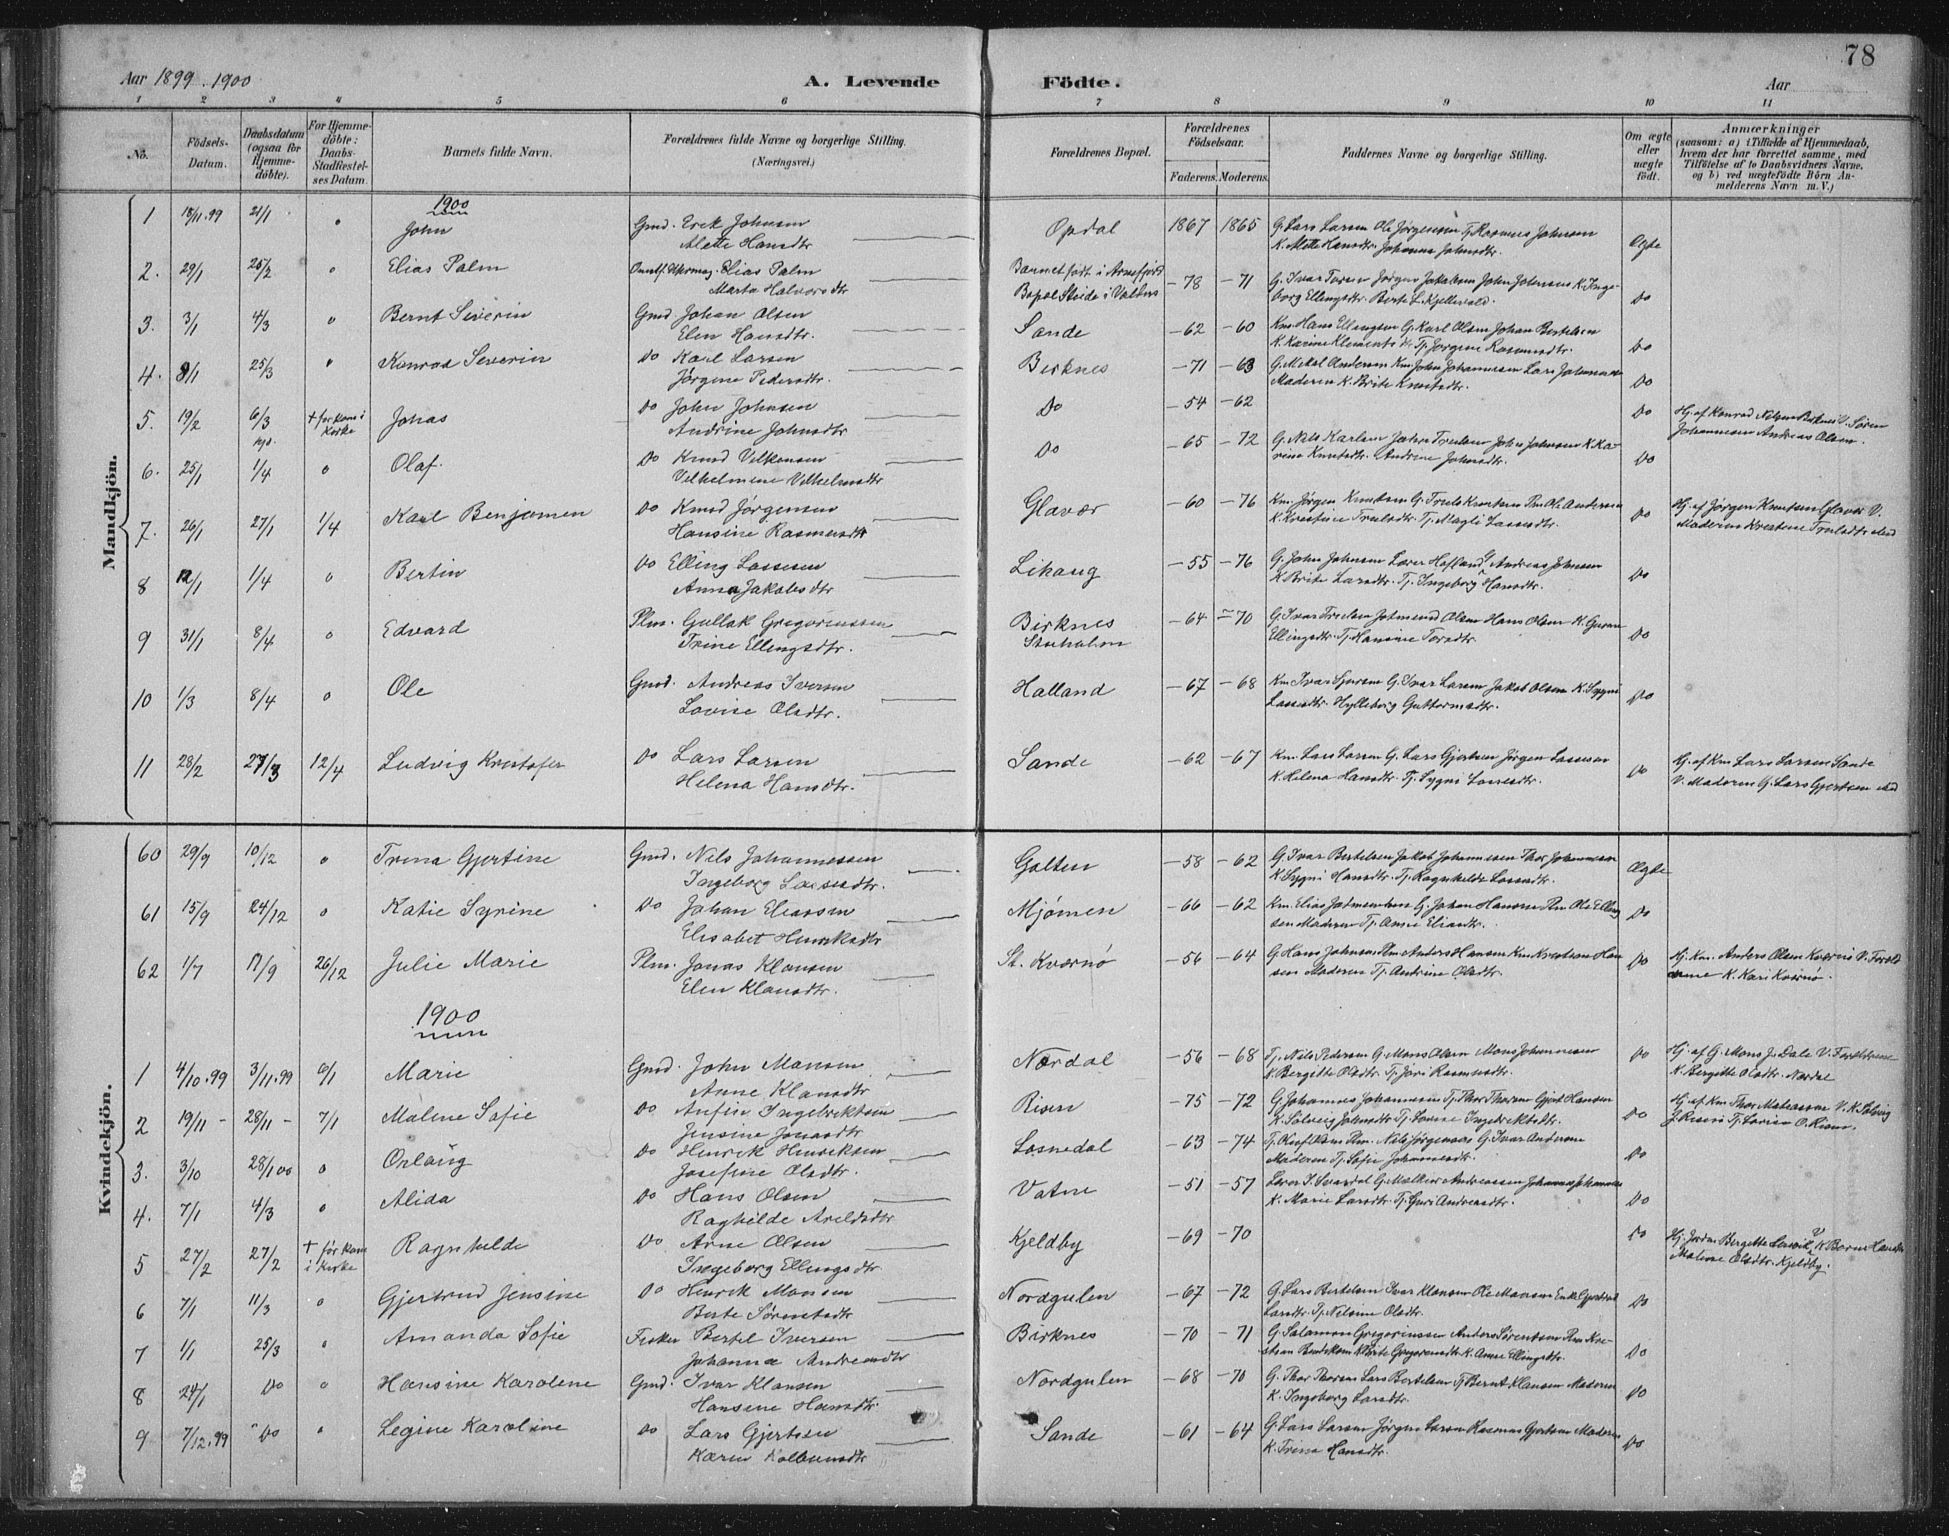 78
Aar 1899.1900
A. Levende
Födte.
Aar
1 2 3 4 5 6 7 8 9 10 11
No.
Födsels-
Datum.
Daabsdatum
(ogsaa for
Hjemme-
döbte).
For Hjemme-
döbte:
Daabs-
Stadfæstel-
ses Datum.
Barnets fulde Navn.
Forældrenes fulde Navne og borgerlige Stilling.
(Næringsvei.)
Forældrenes Bopæl.
Forældrenes
Födselsaar.
Faderens. Moderens.
Faddernes Navne og borgerlige Stilling.
Om ægte
eller
uægte
født.
Anmærkninger
(saasom: a) i Tilfælde af Hjemmedaab,
hvem der har forrettet samme, med
Tilføielse af to Daabsvidners Navne,
og b) ved uægtefödte Börn An-
melderens Navn m. V.)
Mandkjön.
1900
1 18/11.99 21/1 o John Gmd. Erik Johnsen Opdal 1867 1865 G. Lars Larsen Ole Jørgensen Tj. Rasmus Johnsen Ægte
Alette Hansdtr K. Mette Hansdtr. Johanna Johnsdtr.
2. 29/1 25/2 o Elias Palm Elias Palm Barnet født i Arnefjord -78 -71 G. Ivar Torsen Jørgen Jakobsen John Johnsen K. Inge- Do
Marta Halvorsdtr Bopæl Skeide i Valders borg Ellingsdtr. Berte L. Kjellevold.
3. 3/1 4/3 o Bernt Severin Gmd Johan Olsen Sande -62 -60 Km. Hans Ellingsen G. Karl Olsen Johan Bertelsen Do
Elen Hansdtr. K. Karine Klements Tj. Jørgine Rasmusdtr.
4. 8/1 25/3 Konrad Severin Do Karl Larsen Birknes -71 -63 G. Mikal Andersen Km. John Johannessen Lars Johannes Do
Jørgine Pedersdtr. Moderen K. Brite Knutsdtr.
5. 19/2 6/3 + før kom i Kirke Jonas Do John Johnsen Do -54 -62 Do Hj. af Konrad Nilsen Birknes V. Søren
Andrine Johnsdtr Johannessen Andreas Olsen.
6. 25/1 1/4 o Olaf. Do Knud Vilkensen Do -65 -72 G. Nils Karlsen John Trulsen John Johnsen K. Ka- Do
Vilhelmine Vilhelmsdtr rine Knutsdtr. Andrine Johnsdtr.
7. 26/1 27/1 1/4 Karl Benjamen Do Knud Jørgensen Glavær -60 -76 Km. Jørgen Knutsen G. Truls Knutsen Pm Ole Andersen Do Hj. af Jørgen Knutsen Glavær V.
Hansine Rasmusdtr K. Kristine Trulsdtr. Tj. Magli Lassesdtr. Moderen Kristine Trulsdtr
8 12/1 1/4 o Bertin Do Elling Lassesen Lihaug -55 -76 G. John Johnsen Lærer Hafland G. Andreas Johnsen Do
Anna Jakobsdtr K. Brite Larsdtr. Tj. Ingeborg Hansdtr.
9 31/1 8/4 o Edvard Plm. Gullak Gregoriussen Birknes -64 -70 G. Ivar Trulsen Hans Olsen K. Guron Do
Trine Ellingsdtr. Ellingsdtr. Tj. Hansine Torsdtr.
10 1/3 8/4 o Ole Gmd. Andreas Iversen Halland -67 -68 Km. Ivar G. Ivar Larsen Jakob Olsen K. Sygni Do
Lovise Olsdtr. Lassesdtr. Hylleborg Guttormsdtr.
11 28/2 27/3 12/4 Ludvig Kristofer Do Lars Larsen Sande -62 -67 Km. Lars Larsen G. Lars Gjertsen Jørgen Lassesen Do Hj. af Km. Lars Larsen Sande
Helena Hansdtr. K. Helena Hansdtr. Tj. Sygni Larsesdtr. V. Moderen G. Lars Gjertsen
Kvindekjön.
60 29/9 10/12 o Trina Gjertine Gmd. Nils Johannessen Galten -58 -62 G. Ivar Bertelsen Jakob Johannessen Thor Johannessen Ægte
Ingeborg Larsesdtr. K. Sygni Hansdtr. Tj. Ragnhilde Lassesdtr.
61 15/9 24/12 o Katie Syrine Do Johan Eliassen Mjømen -66 -62 Km. Elias G. Johan Hansen Pm Ole Elling Do
Elisabet Henriksdtr sen Moderen Tj. Anne Eliasdtr.
62 1/7 17/9 26/12 Julie Marie Plm. Jonas Klausen St. Kværnø -56 -64 G. Hans Johnsen Pm Anders Hansen Km. Kristian Han Do Hj. Km. Anders Olsen Kværnø V. Foræld
Elen Klausdtr. sen Moderen Tj. Andrine Olsdtr. rene K. Kari Kværnø.
1900
1 4/10.99 3/11.99 6/1 Marie Gmd. John Monsen Nordal -56 -68 Tj. Nils Pedersen G. Mons Olsen Mons Johannessen Do Hj. af G. Mons J. Dale V. Forældrene
Anne Klausdtr K. Bergitte Olsdtr. Tj. Jori Rasmusdtr. K. Bergitte Olsdtr. Nordal
2 19/11 - 28/11 - 7/1 Malene Sofie Do Anfin Ingebriktsen Risen -75 -72 G. Johannes Johannessen Tj. Thor Thorsen Gjert Hansen Do Hj. af Km Thor Matiassen V. K. Solveig
Jensine Jonasdtr K. Solveig Johnsdtr Tj. Lovise Ingebriktsdtr. J. Risen Tj. Lovise O. Risen.
3. 3/10 28/1 00 o Orlaug Do Henrik Henriksen Losnedal -63 -74 Tj. Olaf Pm. Nils Jørgensen G. Ivar Andersen Do
Josefine Olsdtr. Moderen Tj. Sofie Johannesdtr.
4. 7/1 4/3 o Alida Do Hans Olsen Vatne -51 -57 Lærer I. Svardal G. Melkior Andreassen Johannes Johannes Do
Raghilde Arildsdtr K. Marie Larsdtr. Tj. Guri Andreasdtr.
5 27/2 27/2 + før kom i Kirke Ragnhilde Do Arne Olsen Kjeldby -69 -70 Do Hj. Jordm. Bergitte Lervik V. K. Borni Hansdtr
Ingeborg Ellingsdtr Malene Olsdtr. Kjeldby.
6 7/1 11/3 o Gjertrud Jensine Do Henrik Monsen Nordgulen -67 -72 G. Lars Bertelsen Ivar Klausen Ole Monsen Enke Gjertrud Do
Berte Sørensdtr Larsdtr. Tj. Nilsine Olsdtr.
7 1/1 25/3 Amanda Sofie Fisker Bertil Iversen Birknes -70 -71 G. Salamon Gregoriussen Anders Sørensen Pm Kri- Do
Johanna Andreasdtr stian Bendiksen K. Brite Gregoriusdtr. K. Anne Ellingsdtr.
8 24/1 Do Hansine Karolene Gmd. Ivar Klausen Nordgulen -68 -70 G. Thor Thorsen Lars Bertelsen Tj. Bernt Klausen Moderen Do
Hansine Hansdtr. K. Ingeborg Larsdtr.
9 7/12.99 Do Legine Karoline Do Lars Gjertsen Sande -61 -64 G. Lars Larsen Jørgen Larsen Rasmus Gjertsen Moderen Do
Karen Kolbensdtr K. Trina Hansdtr.